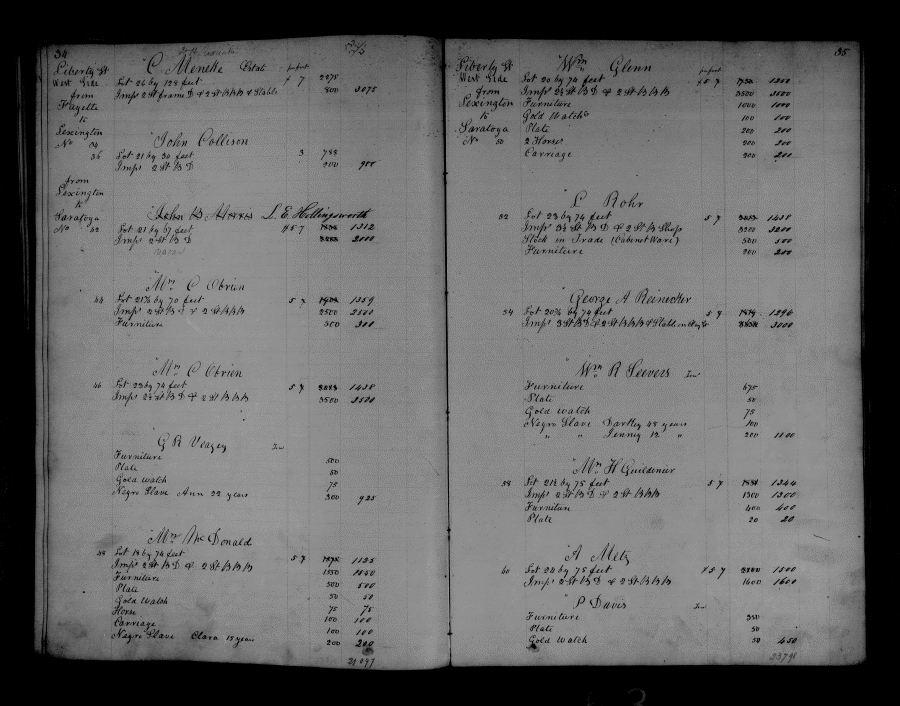 34
Liberty St
C Meneke Estate per foot
West Side Lot 26 by 128 feet 7 2275
from Imps 2 St frame D & 2 St B B B & Stable 800 3075
Fayette
to
Lexington
John Collison
No 34
36 Lot 21 by 30 feet 3 788
Imps 2 St B D 200 988
from
Lexington
to
Saratoga
John B Morris L. E. Hollingsworth
No 42 Lot 21 by 67 feet 5 7 1312
Imps 2 St B D 2000
Mrs C Obrien
44 Lot 21¾ by 70 feet 5 7 1359
Imps 2 St B D & 2 St B B B 2500 2500
Furniture 300 300
Mrs C Obrien
46 Lot 23 by 74 feet 5 7 1438
Imps 2½ St B D & 2 St B B B 3500 3500
G R Veazey
Furniture 500
Plate 50
Gold Watch 75
Negro Slave Ann 32 years 300 925
Mrs McDonald
48 Lot 18 by 74 feet 5 7 1125
Imps 2 St B D & 2 St B B B 1550 1550
Furniture 500 500
Plate 50 50
Gold Watch 75 75
Horse 100 100
Carriage 100 100
Negro Slave Clara 15 years 200 200
21097
35
Liberty St
Wm Glenn per foot
West Side Lot 20 by 74 feet 5 7 1250
from Imps 2½ St B D & 2 St B B B 3500 3500
Lexington Furniture 1000 1000
to Gold Watch 100 100
Saratoga Plate 200 200
No 50 2 Horses 200 200
Carriage 200 200
L Rohr
52 Lot 23 by 74 feet 5 7 1438
Imps 3½ St B D & 2 St B Shop 3200 3200
Stock in Trade (Cabinet Ware) 500 500
Furniture 200 200
George A Reinecker
54 Lot 20¾ by 74 feet 5 7 1296
Imps 3 St B D & 2 St B B B & Stable on Alley 3000
Wm R Seevers
Furniture 675
Plate 50
Gold Watch 75
Negro Slave Dartley 48 years 100
" " Jenney 12 " 200 1100
Mrs H Guildener
58 Lot 21½ by 75 feet 5 7 1344
Imps 2 St B D & 2 St B B B 1300 1300
Furniture 400 400
Plate 20 20
A Metz
60 Lot 24 by 75 feet 5 7 1500
Imps 2 St B D & 2 St B B B 1600 1600
P Davis
Furniture 350
Plate 50
Gold Watch 50 450
23798